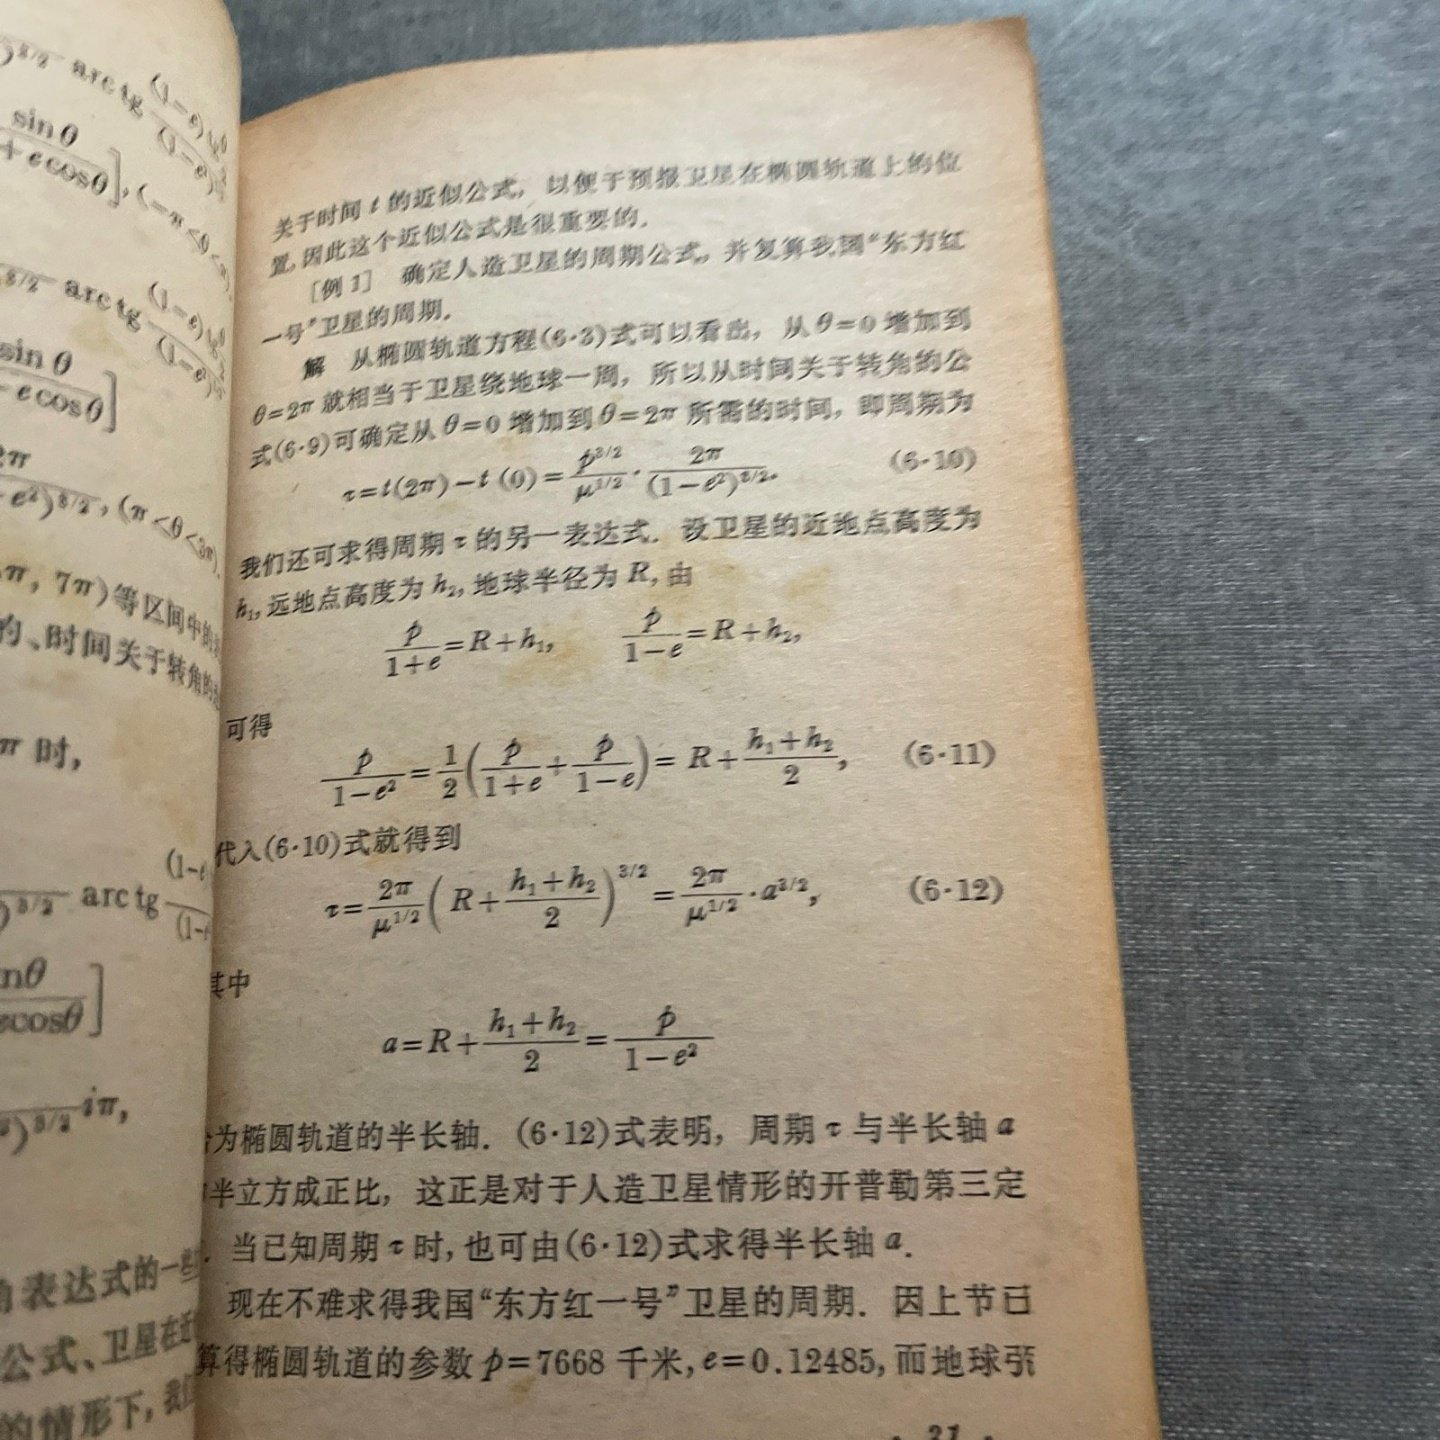 )³/² arc tg (1−e)tg θ/2 / (1−e
sinθ / +ecosθ], (−π<θ<π).
³/² arc tg (1−e)tg θ/2 / (1−e
sinθ / ecosθ]
2π / e²)³/², (π<θ<3π).
π, 7π)等区间中的
的、时间关于转角的
π 时,
)³/² arc tg (1−e / (1−
nθ / ecosθ]
)³/² iπ,
表达式的一些
公式、卫星在近
的情形下,
关于时间 t 的近似公式, 以便于预报卫星在椭圆轨道上的位
置,因此这个近似公式是很重要的.
[例 1] 确定人造卫星的周期公式, 并复算我国“东方红
一号”卫星的周期.
解 从椭圆轨道方程(6·3)式可以看出, 从 θ=0 增加到
θ=2π 就相当于卫星绕地球一周, 所以从时间关于转角的公
式(6·9)可确定从 θ=0 增加到 θ=2π 所需的时间, 即周期为
τ=t(2π)−t(0)=p³/²/μ¹/² · 2π/(1−e²)³/². (6·10)
我们还可求得周期 τ 的另一表达式. 设卫星的近地点高度为
h₁,远地点高度为 h₂,地球半径为 R,由
p/(1+e)=R+h₁, p/(1−e)=R+h₂,
可得
p/(1−e²)=1/2(p/(1+e)+p/(1−e))=R+(h₁+h₂)/2, (6·11)
代入(6·10)式就得到
τ=2π/μ¹/²(R+(h₁+h₂)/2)³/²=2π/μ¹/²·a³/², (6·12)
其中
a=R+(h₁+h₂)/2=p/(1−e²)
为椭圆轨道的半长轴. (6·12)式表明, 周期 τ 与半长轴 a
半立方成正比, 这正是对于人造卫星情形的开普勒第三定
. 当已知周期 τ 时,也可由(6·12)式求得半长轴 a.
现在不难求得我国“东方红一号”卫星的周期. 因上节已
算得椭圆轨道的参数 p=7668 千米,e=0.12485,而地球引
· 31 ·